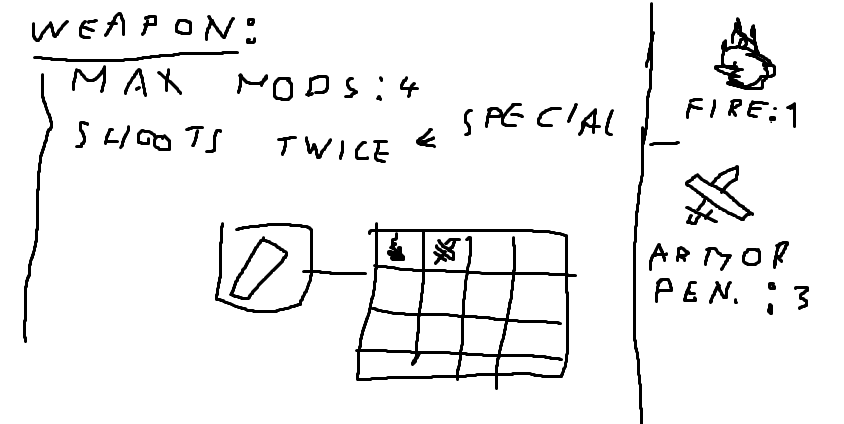 WEAPON:
MAX MODS: 4
SHOOTS TWICE < SPECIAL
FIRE: 1
ARMOR
PEN. : 3